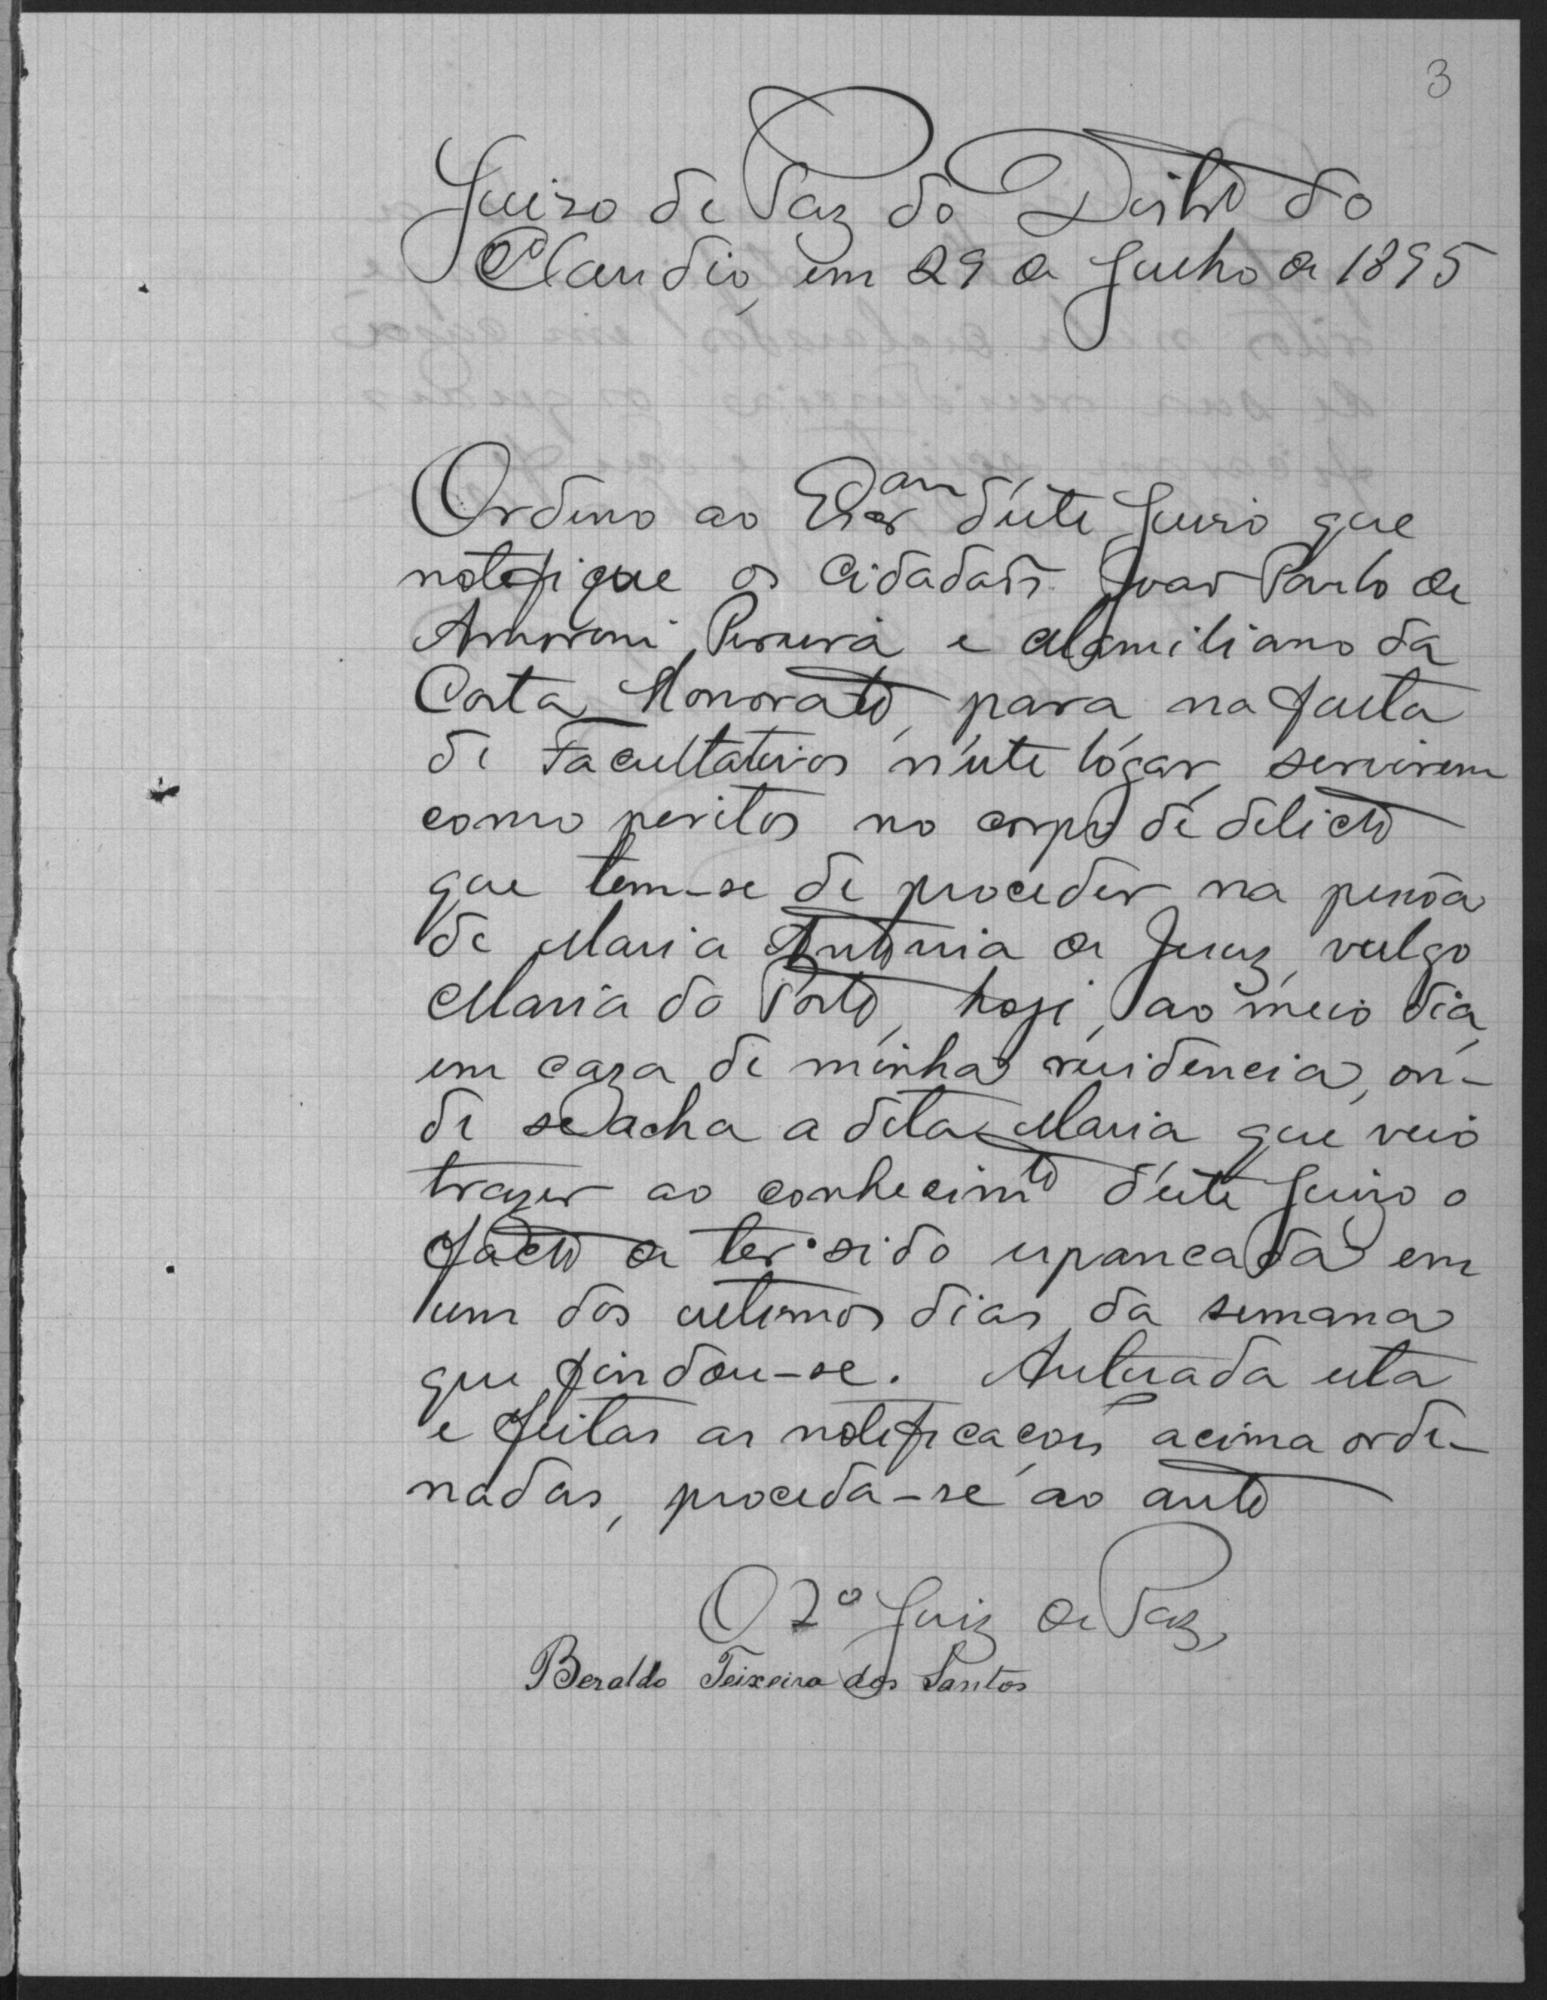 3
Juizo de Paz do Distrº do
Claudio, em 29 de Julho de 1895
Ordeno ao Escram d'este Juizo que
notefique os cidadãos João Paulo de
Amorim Pereira e Mamiliano da
Costa Honorato, para na falta
de Facultativos n'este lógar, servirem
como peritos no corpo de delicto
que tem-se de proceder na pessôa
de Maria Antonia de Jesuz, vulgo
Maria do Porto, hoje, ao meio dia,
em caza de minha residencia, on-
de se acha a dita Maria que veio
trazer ao conhecimto d'este Juizo o
facto de ter sido espancada em
um dos ultimos dias da semana
que findou-se. Autuada esta
e feitas as noteficacoes acima orde-
nadas, proceda-se ao auto
O 2º Juiz de Paz,
Beraldo Teixeira dos Santos